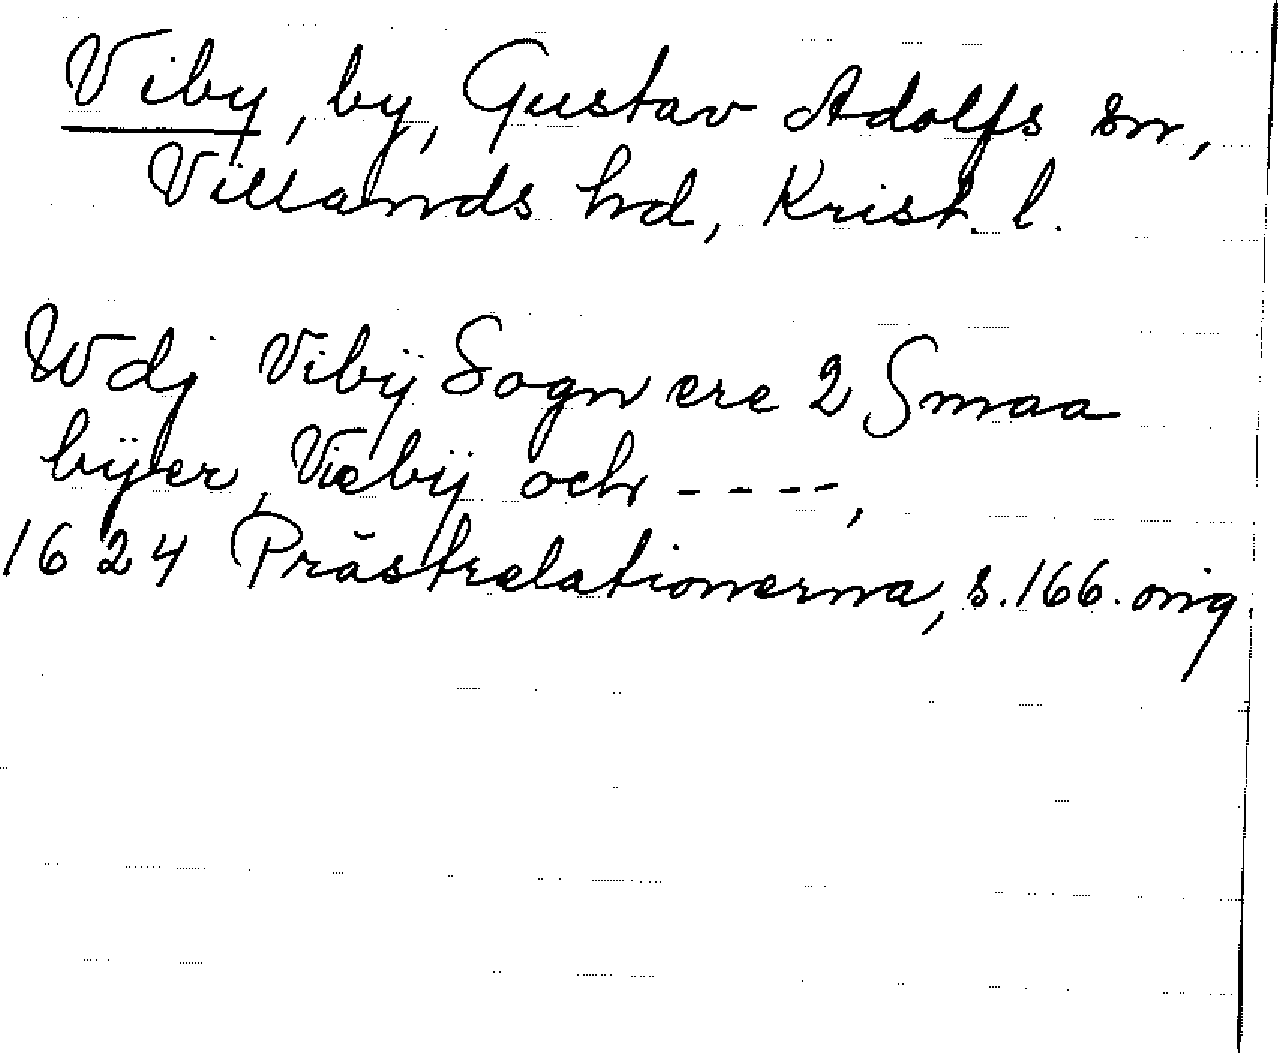 Viby, by, Gustav Adolfs sn,
Villands hd, Krist. l.
Wdj Vibÿ Sogn ere 2 Smaa
bÿer, Viebÿ och - - - -,
1624 Prästrelationerna, s. 166. orig.